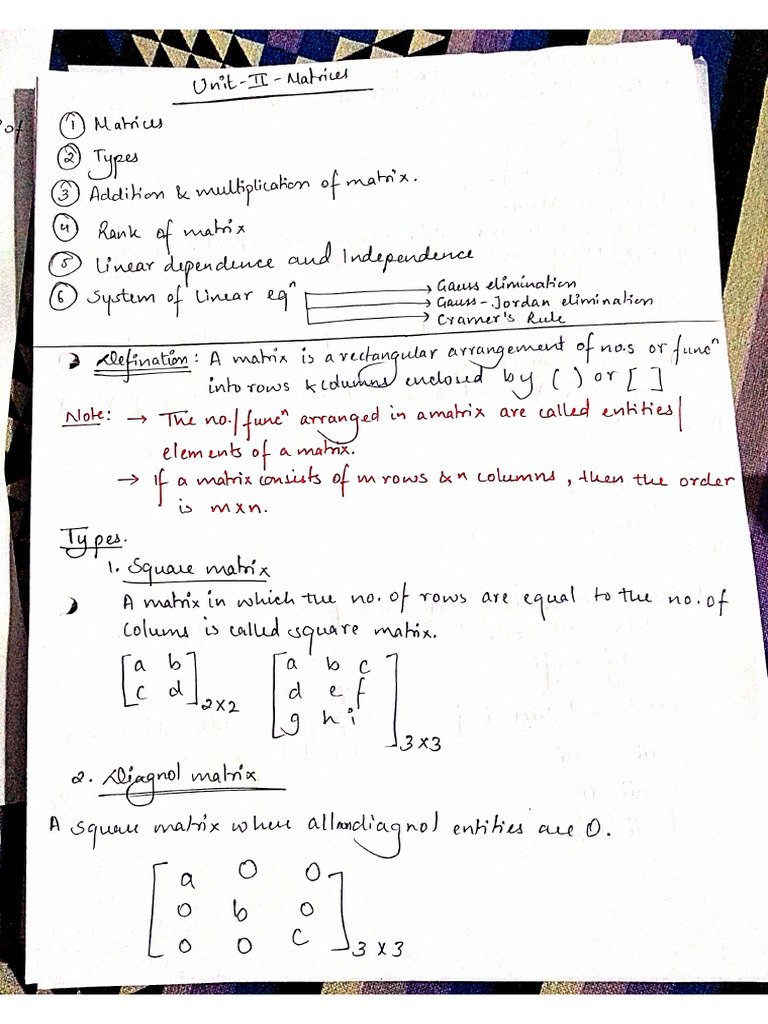 of
Unit-II-Matrices
① Matrices
② Types
③ Addition & multiplication of matrix.
④ Rank of matrix
⑤ Linear dependence and Independence
⑥ System of Linear eqⁿ
→ Gauss elimination
→ Gauss-Jordan elimination
→ Cramer's Rule
Defination: A matrix is a rectangular arrangement of no.s or funcⁿ
into rows & columns enclosed by ( ) or [ ]
Note: → The no./funcⁿ arranged in a matrix are called entities/
elements of a matrix.
→ If a matrix consists of m rows & n columns, then the order
is m×n.
Types.
1. Square matrix
A matrix in which the no. of rows are equal to the no. of
colums is called square matrix.
[a b    [a b c
c d]2×2    d e f
g h i]3×3
2. Diagnol matrix
A square matrix where all non diagnol entities are 0.
[a 0 0
0 b 0
0 0 c]3×3